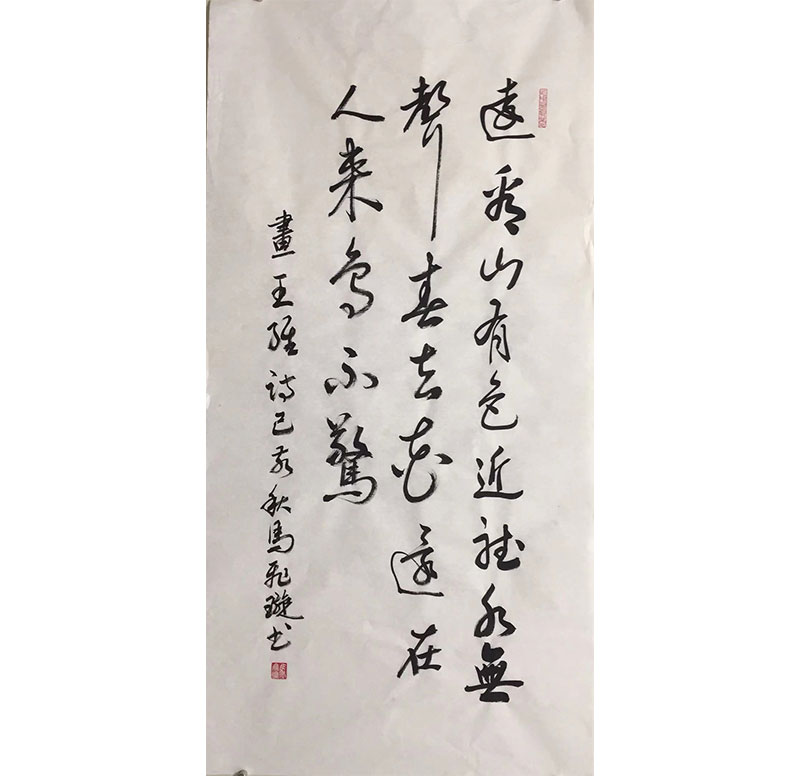 遠看山有色近聽水無
聲春去花還在
人來鳥不驚
畫王維詩己亥秋馬
璇书